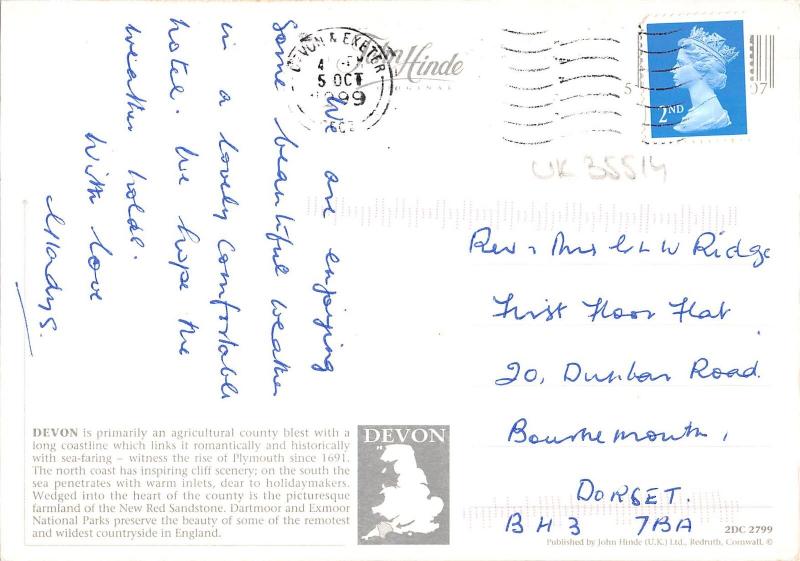 We are enjoying
some beautiful weather
in a lovely comfortable
hotel. We hope the
weather holds.
With love
John Hinde
ORIGINAL
DEVON & EXETER
5 OCT
1999
2ND
5
07
UK 35514
Rev & Mrs W Ridge
First Floor Flat
20, Dunbar Road.
Bournemouth,
DORSET.
BH3 7BA
DEVON is primarily an agricultural county blest with a
long coastline which links it romantically and historically
with sea-faring – witness the rise of Plymouth since 1691.
The north coast has inspiring cliff scenery; on the south the
sea penetrates with warm inlets, dear to holidaymakers.
Wedged into the heart of the county is the picturesque
farmland of the New Red Sandstone. Dartmoor and Exmoor
National Parks preserve the beauty of some of the remotest
and wildest countryside in England.
DEVON
2DC 2799
Published by John Hinde (U.K.) Ltd., Redruth, Cornwall. ©